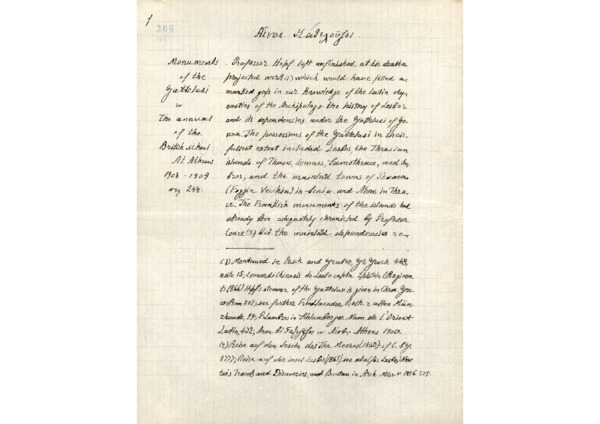 1
306
Αίνος Γατελούζοι
Monuments
of the
Gattelusi
The annual
of the
British School
At Athens
1908-1909
σελ 248.
Professor Hopf left unfinished at his death a
projected work (1) which would have filled a
marked gap in our knowledge of the Latin dy-
nasties of the Archipelago the history of Lesbos
and its dependencies under the Gattelusi of Ge-
noa. The possessions of the Gattelusi in their
fullest extent included Lesbos, the Thracian
islands of Thasos, Lemnos, Samothrace, and Im-
bros, and the mainland towns of
(Foggia Vecchia) in Ionia and Aenos in Thra-
ce. The Frankish monuments of the islands had
already been adequately chronicled by Professor
Conze (2) but the mainland dependencies re-
(1) Mentioned in Ersch and Gruber,
note 15; Leonardo
Hopf's stemma of the Gattelusi is given in Chron. Gre-
co-Rom 502; see further Friedlaender, Beitr. z älteren Münz-
kunde, Schlumberger Num de L'Orient
Latin, 432; Athens
(2) Reise auf den Inseln des Thr. Meeres (1860)
Reise auf der Insel Lesbos (1865) see also for Lesbos New-
ton's Travels and Discoveries, and Boutan in Arch. Miss. V. 1856 275.